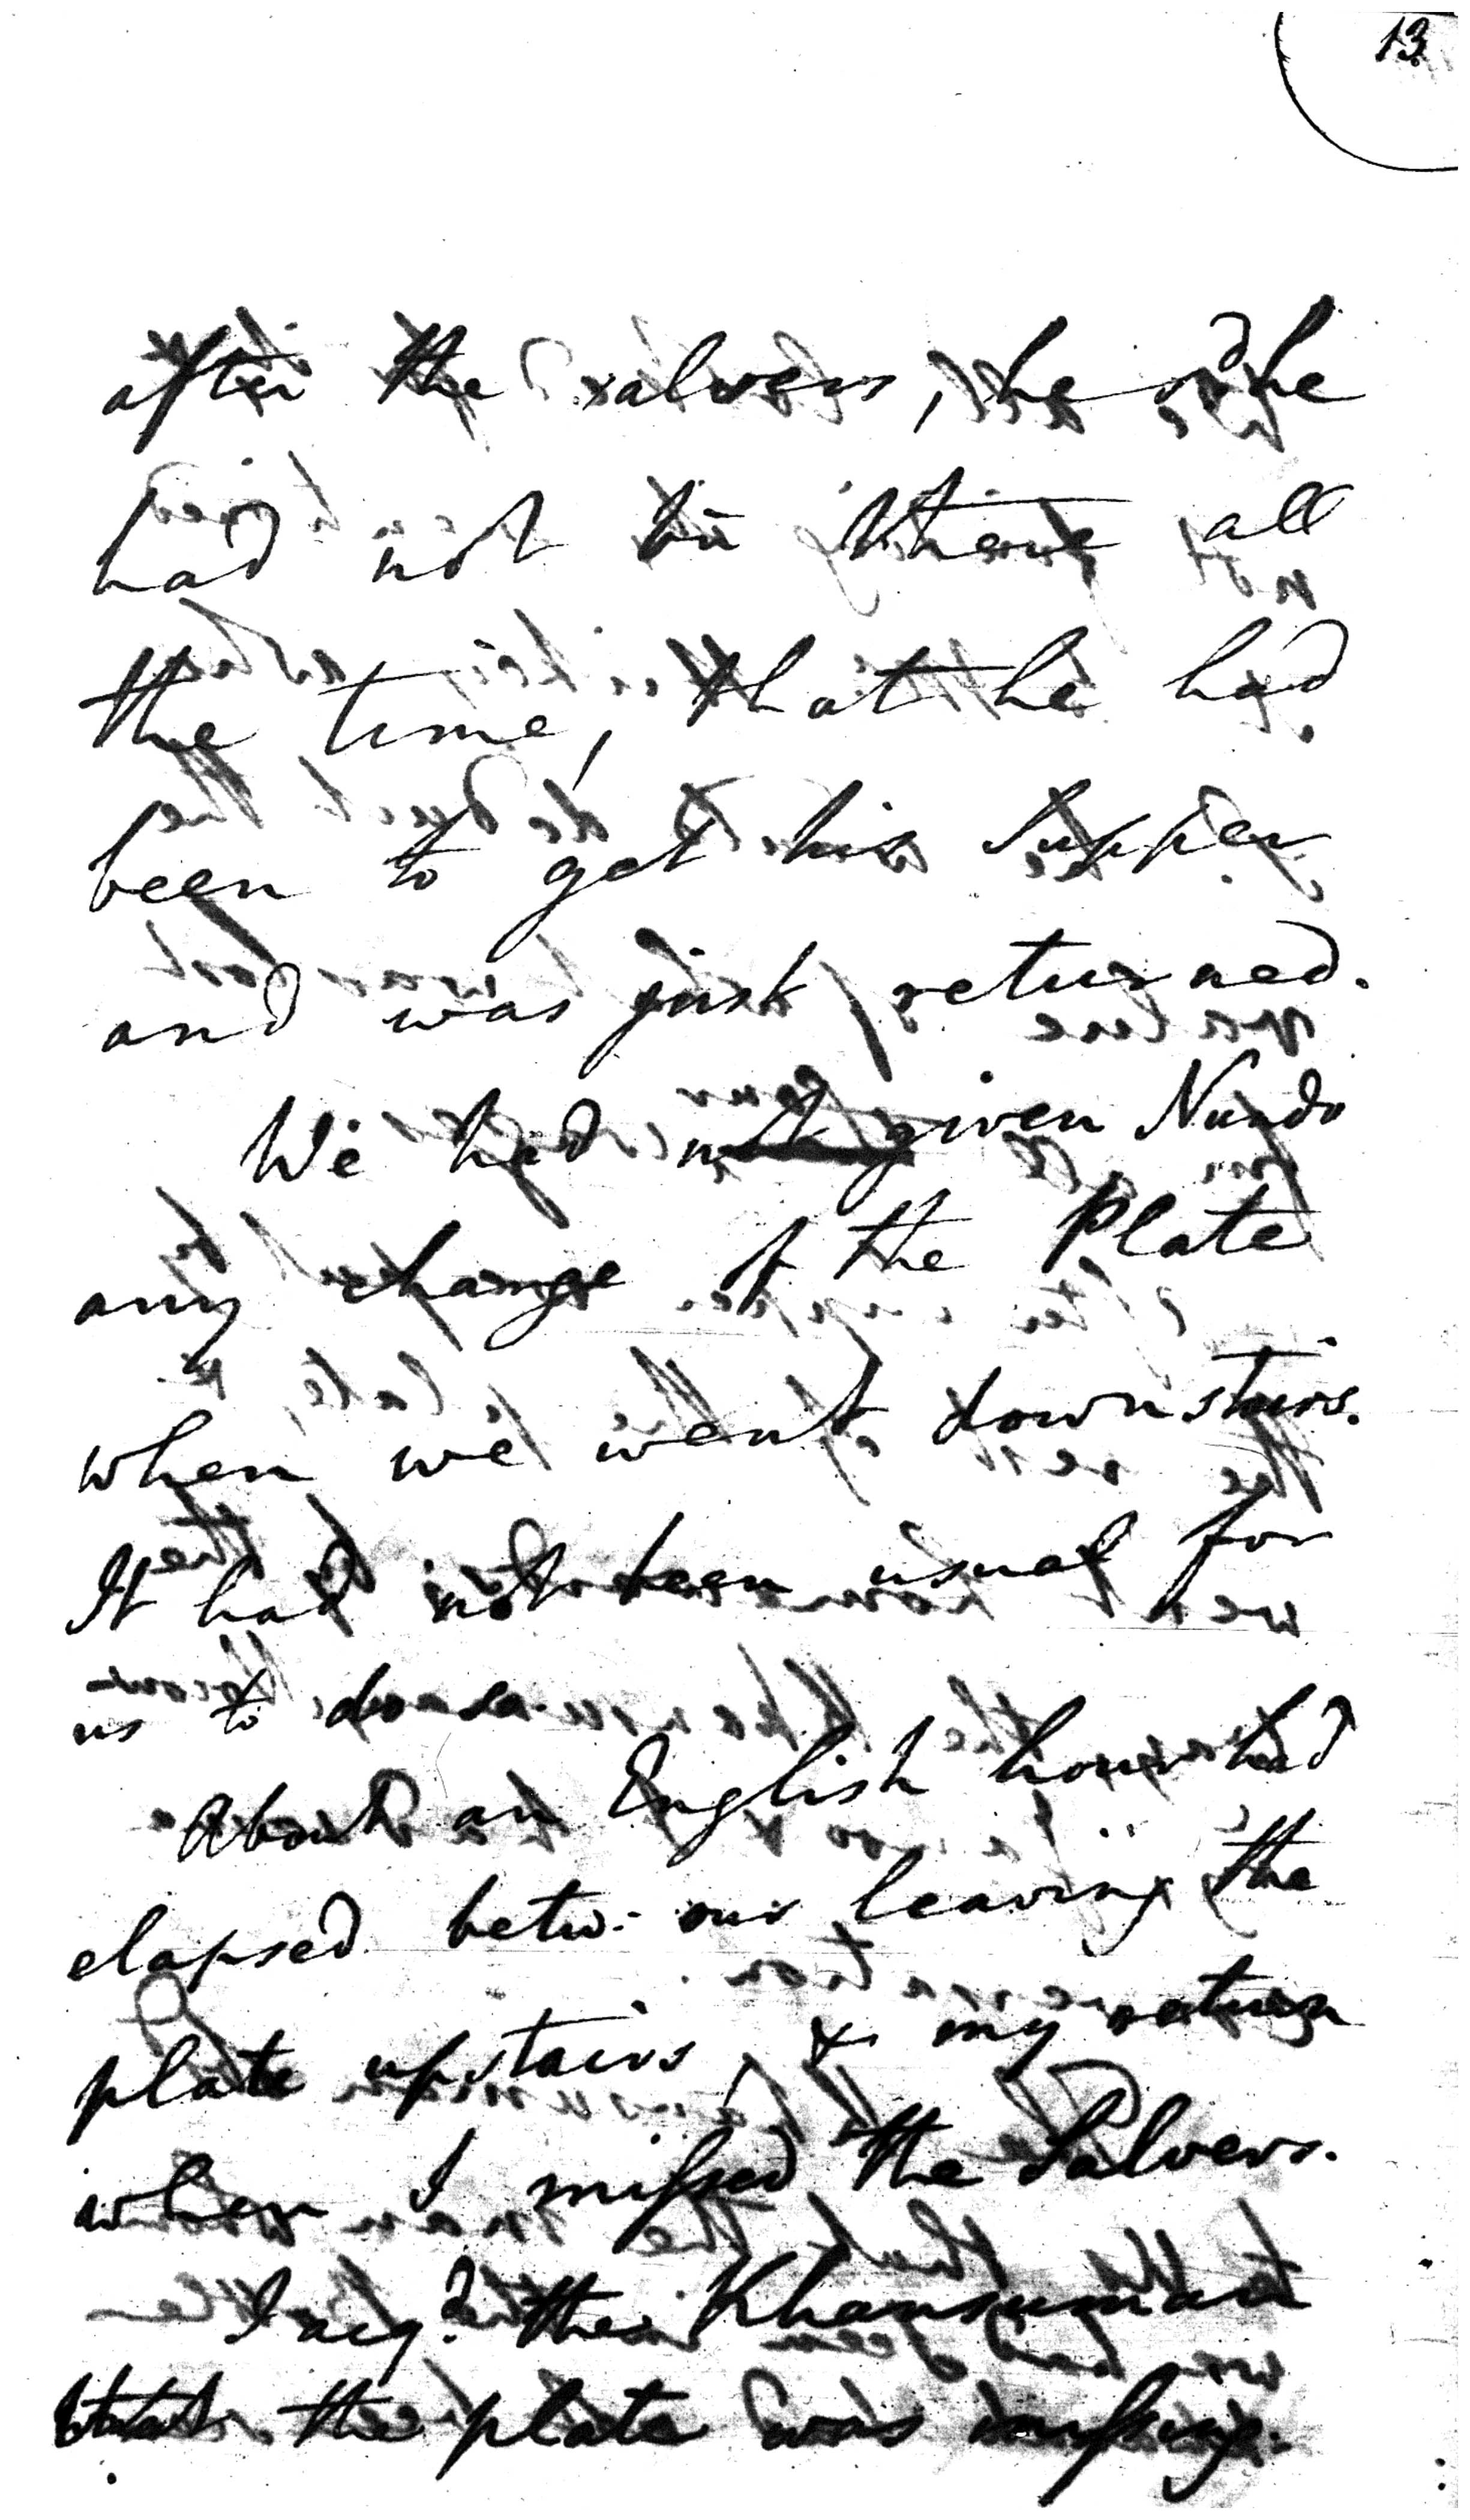 13
after the salvers, he sd he
had not bn there all
the time, that he had
been to get his Supper
and was just returned.
We had not given Nundo
any charge of the Plate
when we went downstairs.
It had not been usual for
us to do so.
About an English hour had
elapsed betw: our leaving the
plate upstairs, & my return
when I missed the Salvers.
I acqd. the Khansumah
that the plate was missing.